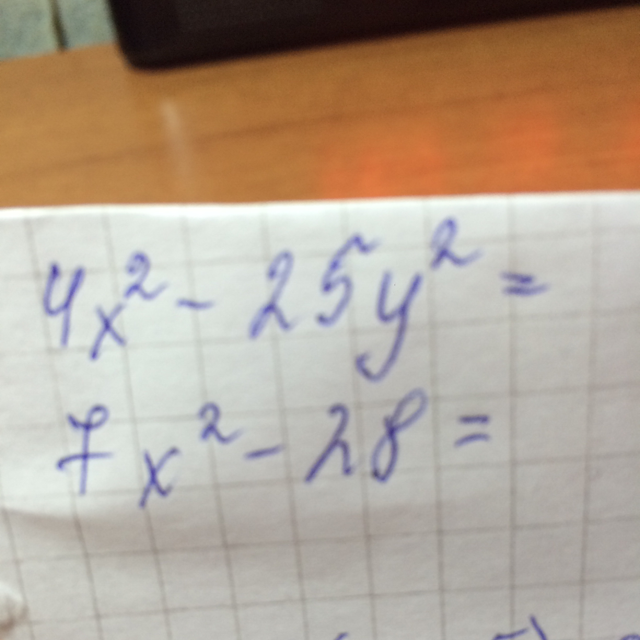 4x² - 25y² =
7x² - 28 =